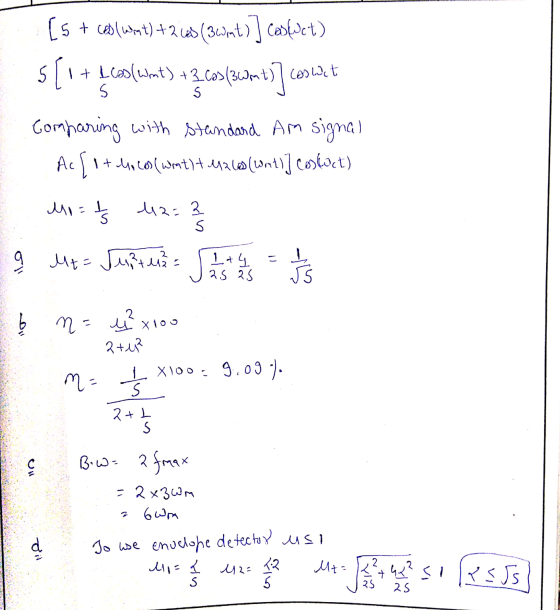 [5 + cos(ωmt) + 2cos(3ωmt)] cos(ωct)
5[1 + 1/5 cos(ωmt) + 2/5 cos(3ωmt)] cosωct
Comparing with standard Am signal
Ac[1 + μ1cos(ωmt) + μ2cos(ωmt)] cos(ωct)
μ1 = 1/5 μ2 = 2/5
a μt = √(μ1² + μ2²) = √(1/25 + 4/25) = 1/√5
b η = μ²/(2+μ²) ×100
η = (1/5)/(2 + 1/5) ×100 = 9.09 %.
c B.W = 2 fmax
= 2 × 3ωm
= 6ωm
d To use envelope detector μ ≤ 1
μ1 = α/5 μ2 = α2/5 μt = √(α²/25 + 4α²/25) ≤ 1 α ≤ √5